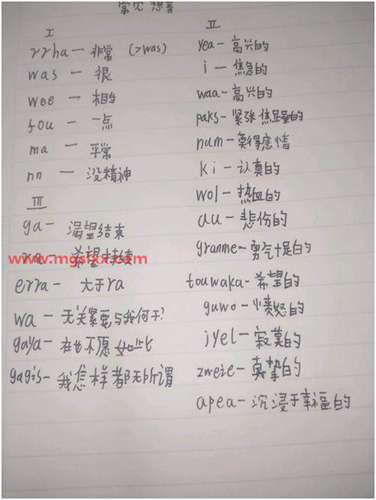 常见想音
I
rrha — 非常 (>was)
was — 很
wee — 相当
fou — 一点
ma — 平常
nn — 没精神
III
ga — 渴望结束
ra — 希望持续
erra — 大于ra
wa — 无关紧要与我何干?
gaya — 在也不愿如此
gagis — 我怎样都无所谓
II
yea — 高兴的
i — 焦急的
waa — 高兴的
paks — 紧张焦虑的
num — 莫得感情
ki — 认真的
wol — 热血的
au — 悲伤的
granme — 勇气十足的
touwaka — 希望的
guwo — 愤怒的
iyel — 寂寞的
zweie — 真挚的
apea — 沉浸于幸福的
www.mgs